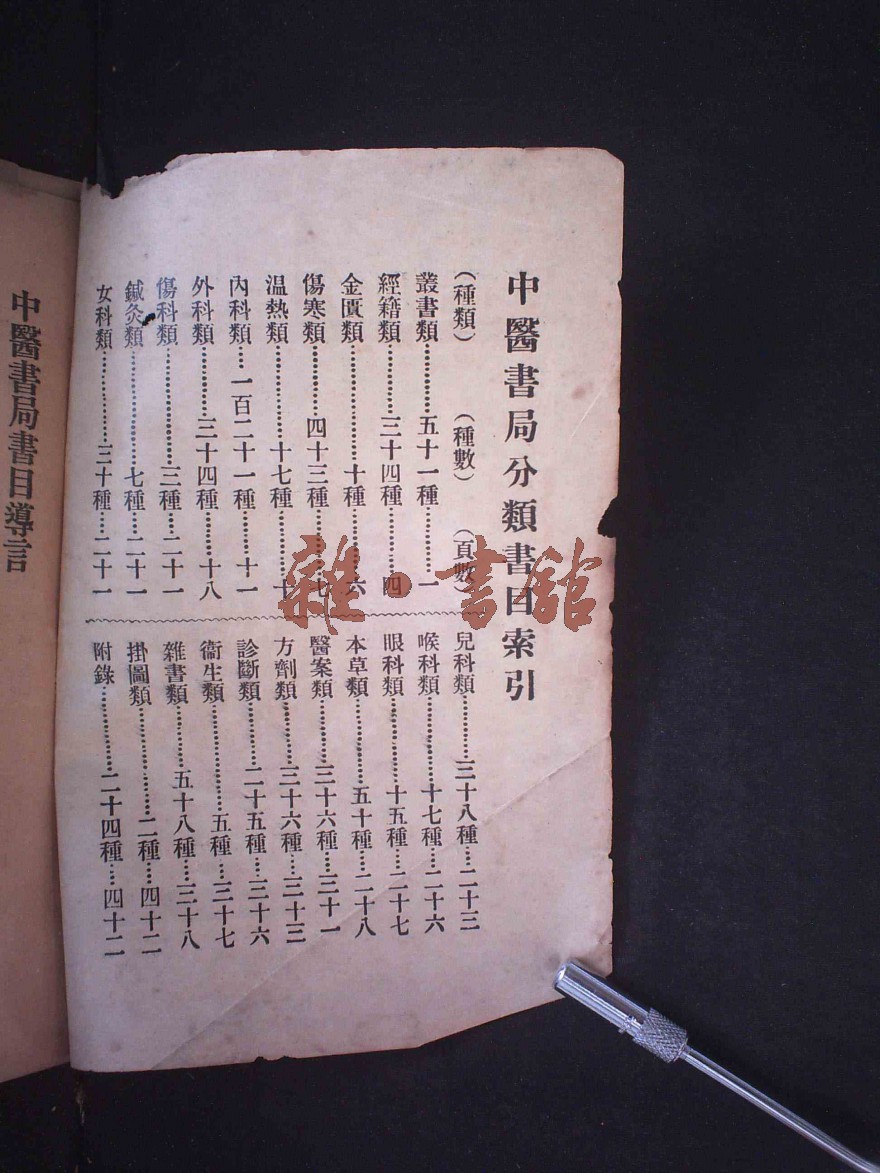 中醫書局分類書目索引
(種類) (種數) (頁數)
叢書類…………五十一種………一
經籍類…………三十四種………四
金匱類……………十種…………六
傷寒類…………四十三種………七
温熱類……………十七種………十
內科類……一百二十一種……十一
外科類…………三十四種……十八
傷科類………………三種…二十一
鍼灸類………………七種…二十一
女科類……………三十種…二十一
兒科類…………三十八種…二十三
喉科類……………十七種…二十六
眼科類……………十五種…二十七
本草類……………五十種…二十八
醫案類…………三十六種…三十一
方劑類…………三十六種…三十三
診斷類…………二十五種…三十六
衞生類………………五種…三十七
雜書類…………五十八種…三十八
掛圖類………………二種…四十二
附錄……………二十四種…四十二
中醫書局書目導言
雜·書館